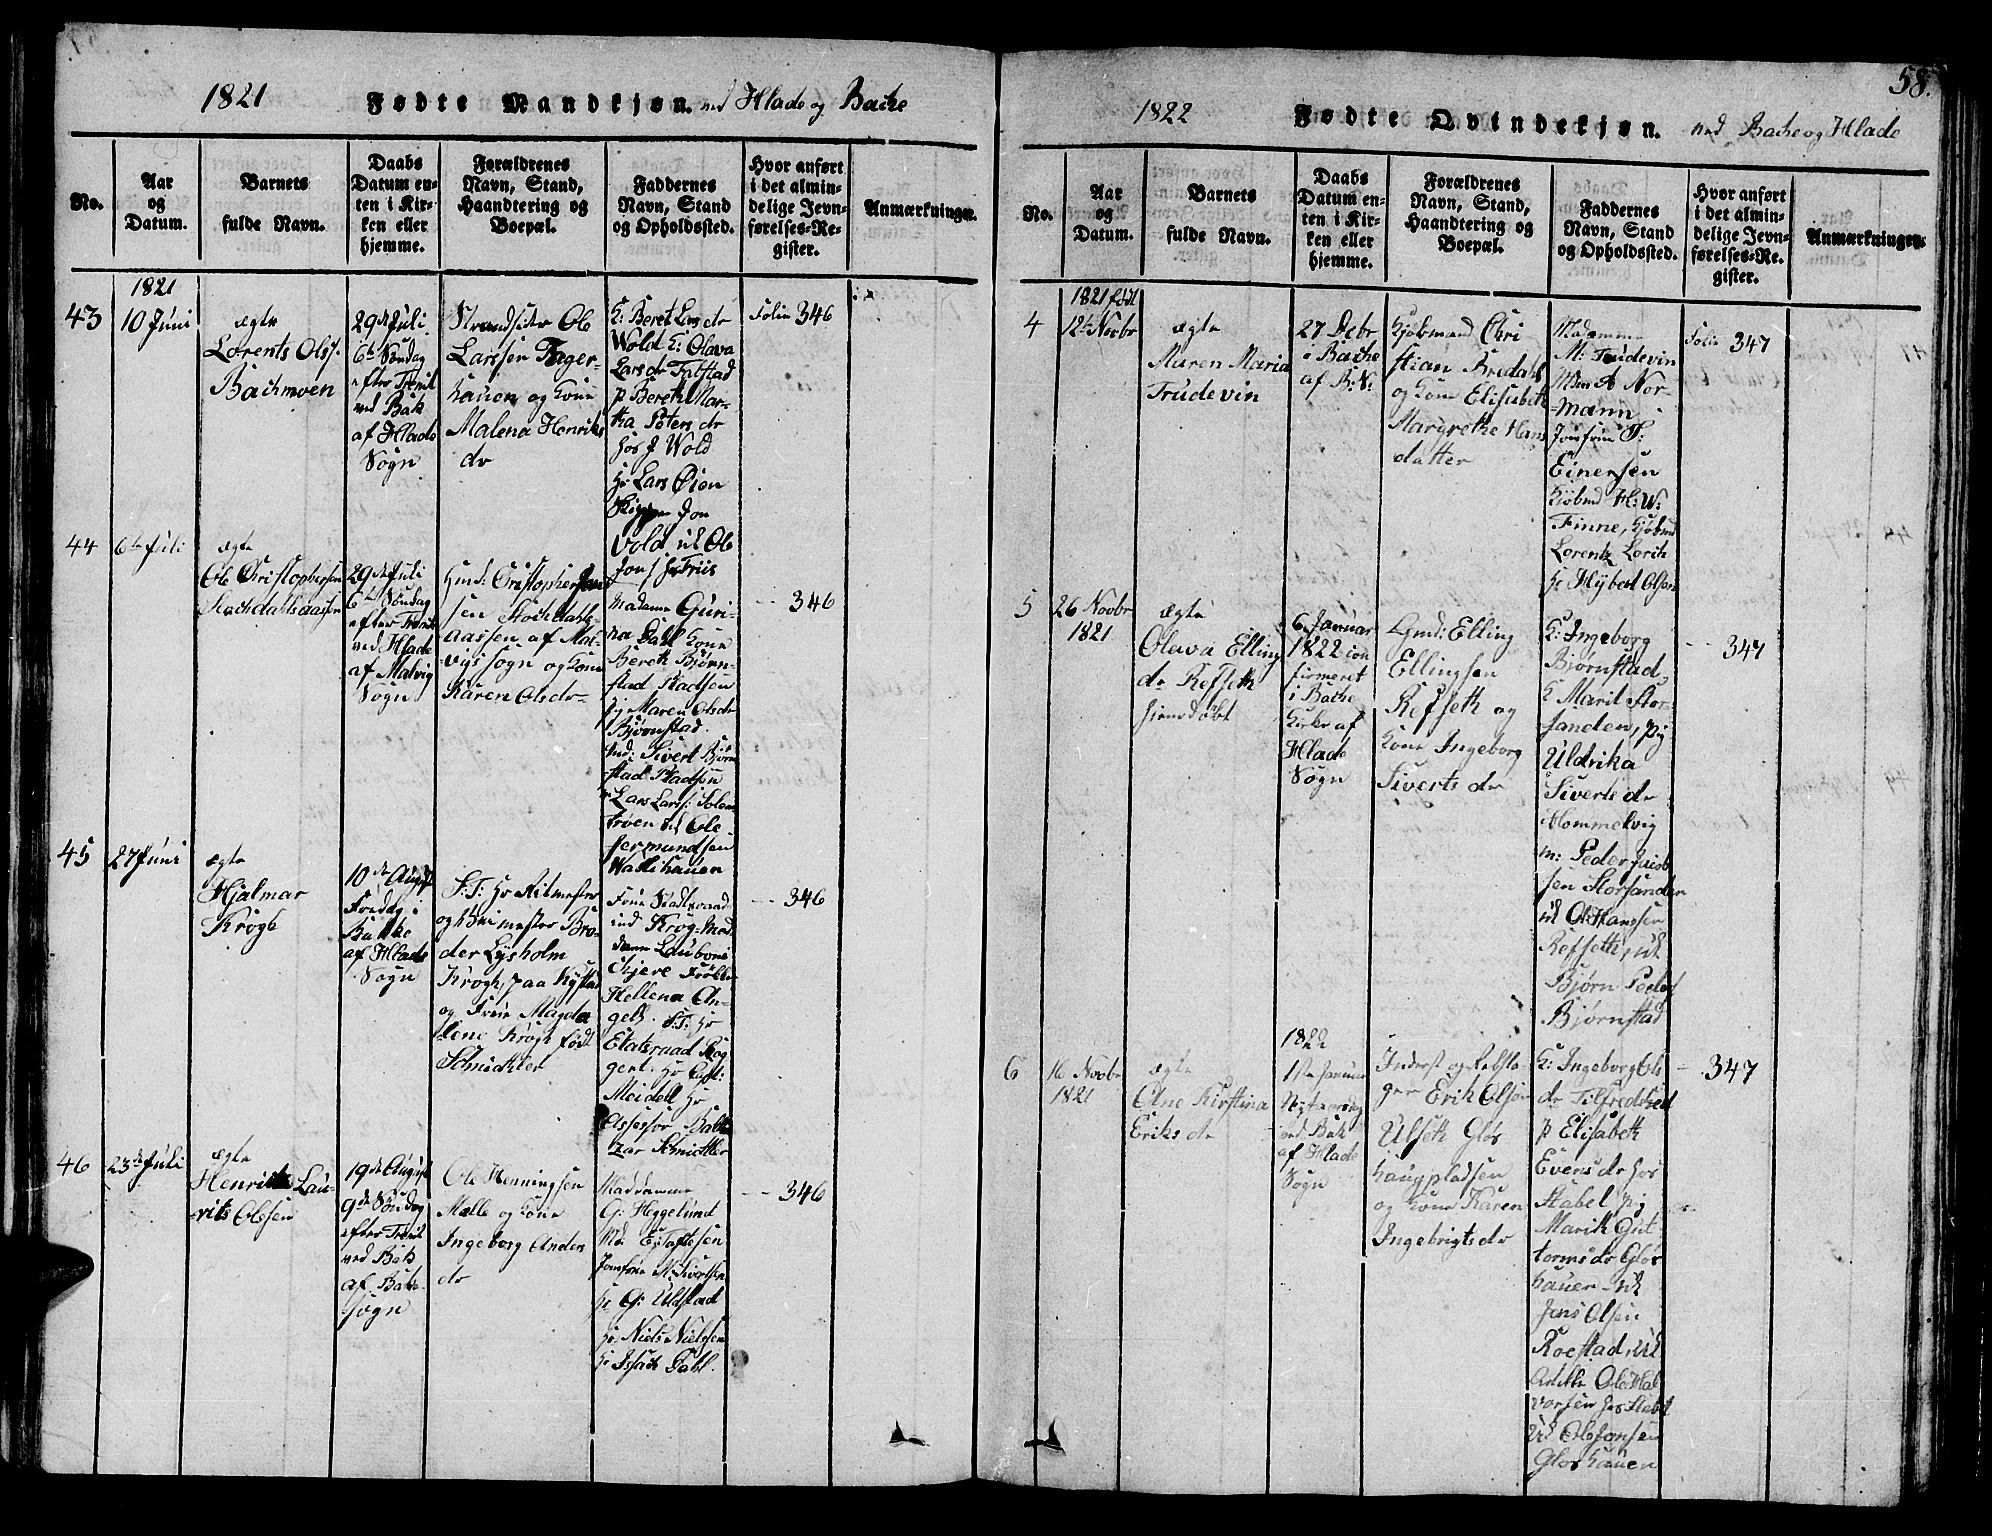 1821 Fødte Mandkjøn. ved Hlade og Bache
No.
Aar
og
Datum.
Barnets
fulde Navn.
Daabs
Datum en-
ten i Kir-
ken eller
hjemme.
Forældrenes
Navn, Stand,
Haandtering og
Boepæl.
Faddernes
Navn, Stand
og Opholdssted.
Hvor anført
i det almin-
delige Jevn-
førelses-Re-
gister.
Anmærkninger.
1821
43
10 Juni
ægte
Lorents Olss.
Bachmoen
29de Juli
6te Søndag
efter Trenit
ved Bak
af Hlade
Sogn
Strandsider Ole
Larssen Fager-
hauen og Kone
Malena Henriks
dr
K: Beret Lars dr
Wold K: Olava
Lars dr Falstad
p Bereth Mar-
tha Peters dr
hos J Wold
Hr Lars Øien
Skipper Jon
Vold uk Ole
Jons hr Friis
Folio 346
44
6te Juli
ægte
Ole Christophersen
Stochdahlsaasen
29de Juli
6te Søndag
efter Trenit
ved Hlade
af Malvig
Sogn
Huusm: Cristopher Jan
sen Stochdahls
aassen af Mal-
vigs sogn og Kone
Karen Olsdr
Madame Guri-
na Dahl Kone
Bereth Bjørn-
stad Pladsen
pige Maren Olsdr
Bjørnstad
Sivert Bjørn
stad Pladsen
Lars Larss: Solem
trøen uk Ole
Jermundsen
Wattihauen
346
45
27 Juni
ægte
Hjalmar
Krogh
10de August
Fredag i
Bakke
af Hlade
Sogn
S: T: Hr Ritmester
og
der Lysholm
Krogh, paa Rystad
og Frue Magda
lene Krogh født
Schmidtler
Frue Stadtsraad
ind Krog Mad
dame
Skjere Frøken
Hellena An-
gell. S: T: Hr
Etatsraad Rog
gert. Hr Capt:
Meidell Hr
Assessor Balt-
zar Schmidtler
346
46
23de Juli
ægte
Henrich Lau-
rits Olssen
19de August
9de Søndag
efter Trenit
ved Bak
af Bakke
Sogn
Ole Henningsen
Mølle og Kone
Ingeborg Anders
dr
Maddamme
G: Heggelund
Md. E: Taftesen
Jomfrue M: Sivertsen
hr G: Uldstad
hr. Niels Nielssen
hr Isach Dahl.
346
58.
1822 Fødte Qvindekjøn. ved Bache og Hlade
No.
Aar
og
Datum.
Barnets
fulde Navn.
Daabs
Datum en-
ten i Kir-
ken eller
hjemme.
Forældrenes
Navn, Stand,
Haandtering og
Boepæl.
Faddernes
Navn, Stand
og Opholdssted.
Hvor anført
i det almin-
delige Jevn-
førelses-Re-
gister.
Anmærkninger.
1821 født
4
12te Novbr
ægte
Maren Maria
Trudevin
27 Debr
i Bache
af B: S:
Kjøbmand Chri
stian Bredahl
og Kone Elisabeth
Margrethe Hans
datter
Madamme
M: Trudevin
Mdm A Nor-
mann
Jomfrue S:
Einersen
Kjøbmd H: W:
Finne, Kjøbmd
Lorentz Lorik
hr Hybert Olsen
Folio 347
5
26 Novbr
1821
ægte
Olava Elling
dr Refseth
hjemdøbt
6te Januar
1822 con
firmeret
i Bache
Kirke af
Hlade
Sogn
Gmd: Elling
Ellingsen
Refseth og
Kone Ingeborg
Siverts dr
K: Ingeborg
Bjørnstad,
K Marit Stor-
sanden, pig
Uldrika
Siverts dr
Hommelvig
m: Peder Jacob
sen Storsanden
uk Ol: Hanssen
Refseth, uk
Bjørn Peders
Bjørnstad
347
6
16 Novbr
1821
ægte
Olne Kirstina
Eriks dr
1822
1ste Januar
Nytaarsdag
ved Bak
af Hlade
Sogn
Inderst og Rebsla-
ger Erik Olsen
Ulseth Gløs
haugpladsen
og Kone Karen
Ingebrigts dr
K: Ingeborg Ols
dr Tilfredshed
p Elisabeth
Evens dr hos
Stabel pig
Marith Gut
torms dr Gløs
hauen uk
Jens Olsen
Roestad, uk
Ole Hal
vorsen hos Stabel
uk Ole Jonsen
Gløshauen
347